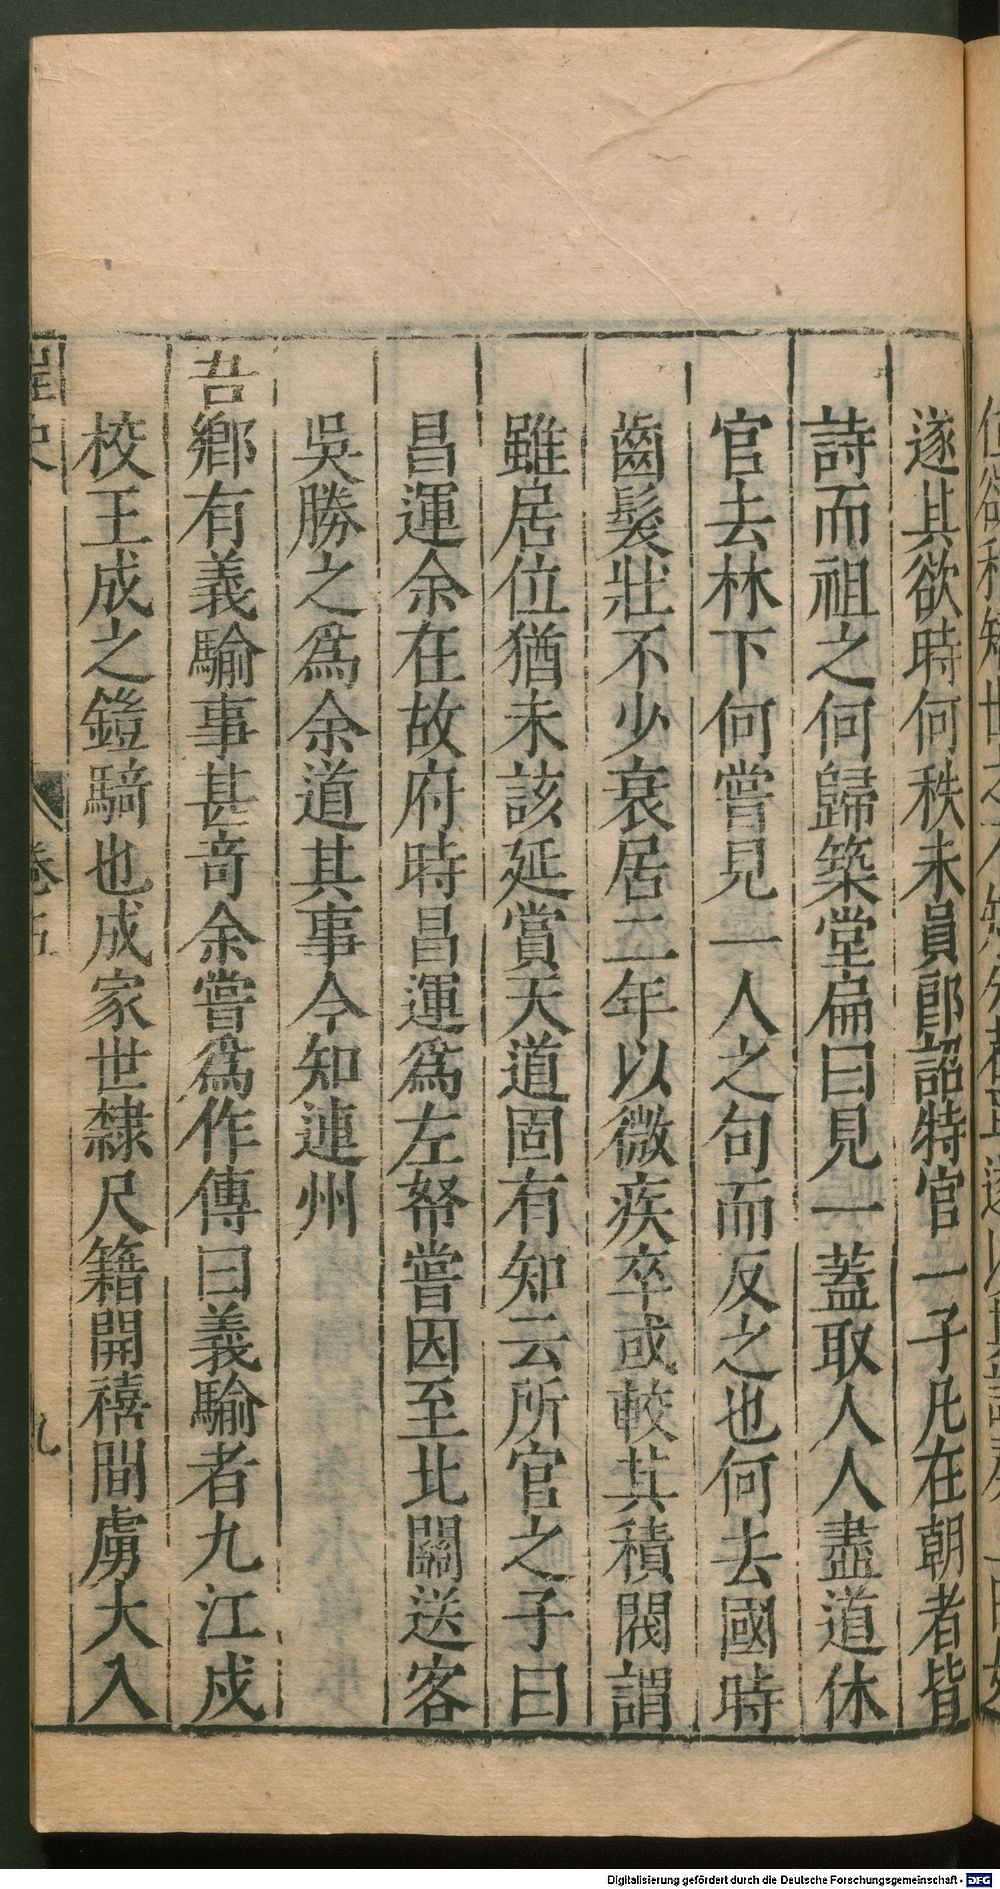 遂其欲時何秩未員郎詔特官一子凡在朝者皆
詩而祖之何歸築堂扁曰見一蓋取人人盡道休
官去林下何嘗見一人之句而反之也何去國時
齒髮壯不少衰居二年以微疾卒或較其積閥謂
雖居位猶未該延賞天道固有知云所官之子曰
昌運余在故府時昌運爲左帑嘗因至北關送客
吳勝之爲余道其事今知連州
吾鄉有義騟事甚奇余嘗爲作傳曰義騟者九江戍
校王成之鐙騎也成家世隸尺籍開禧間虜大入
桯史
卷五
九
Digitalisierung gefördert durch die Deutsche Forschungsgemeinschaft - DFG